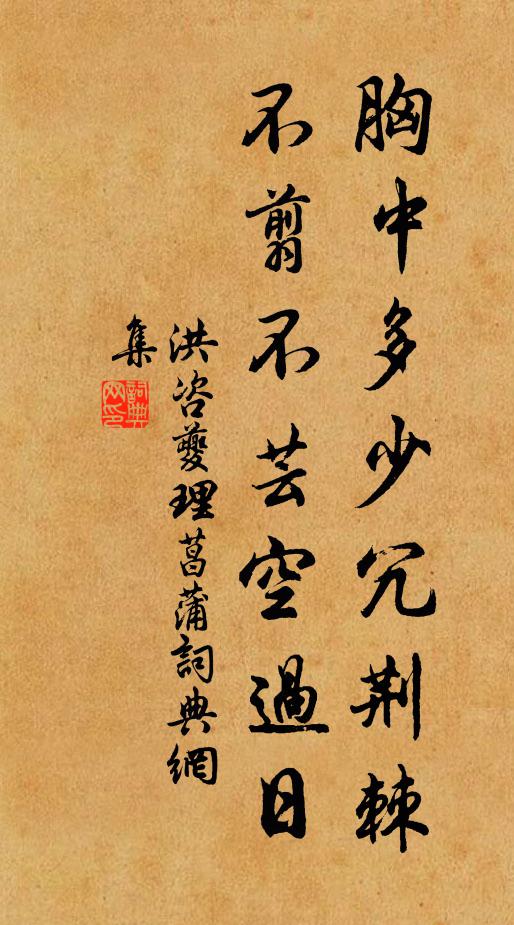 胸中多少冗荆棘
不翦不芸空過日
洪咨夔理菖蒲詞典網
集
詞典
网印